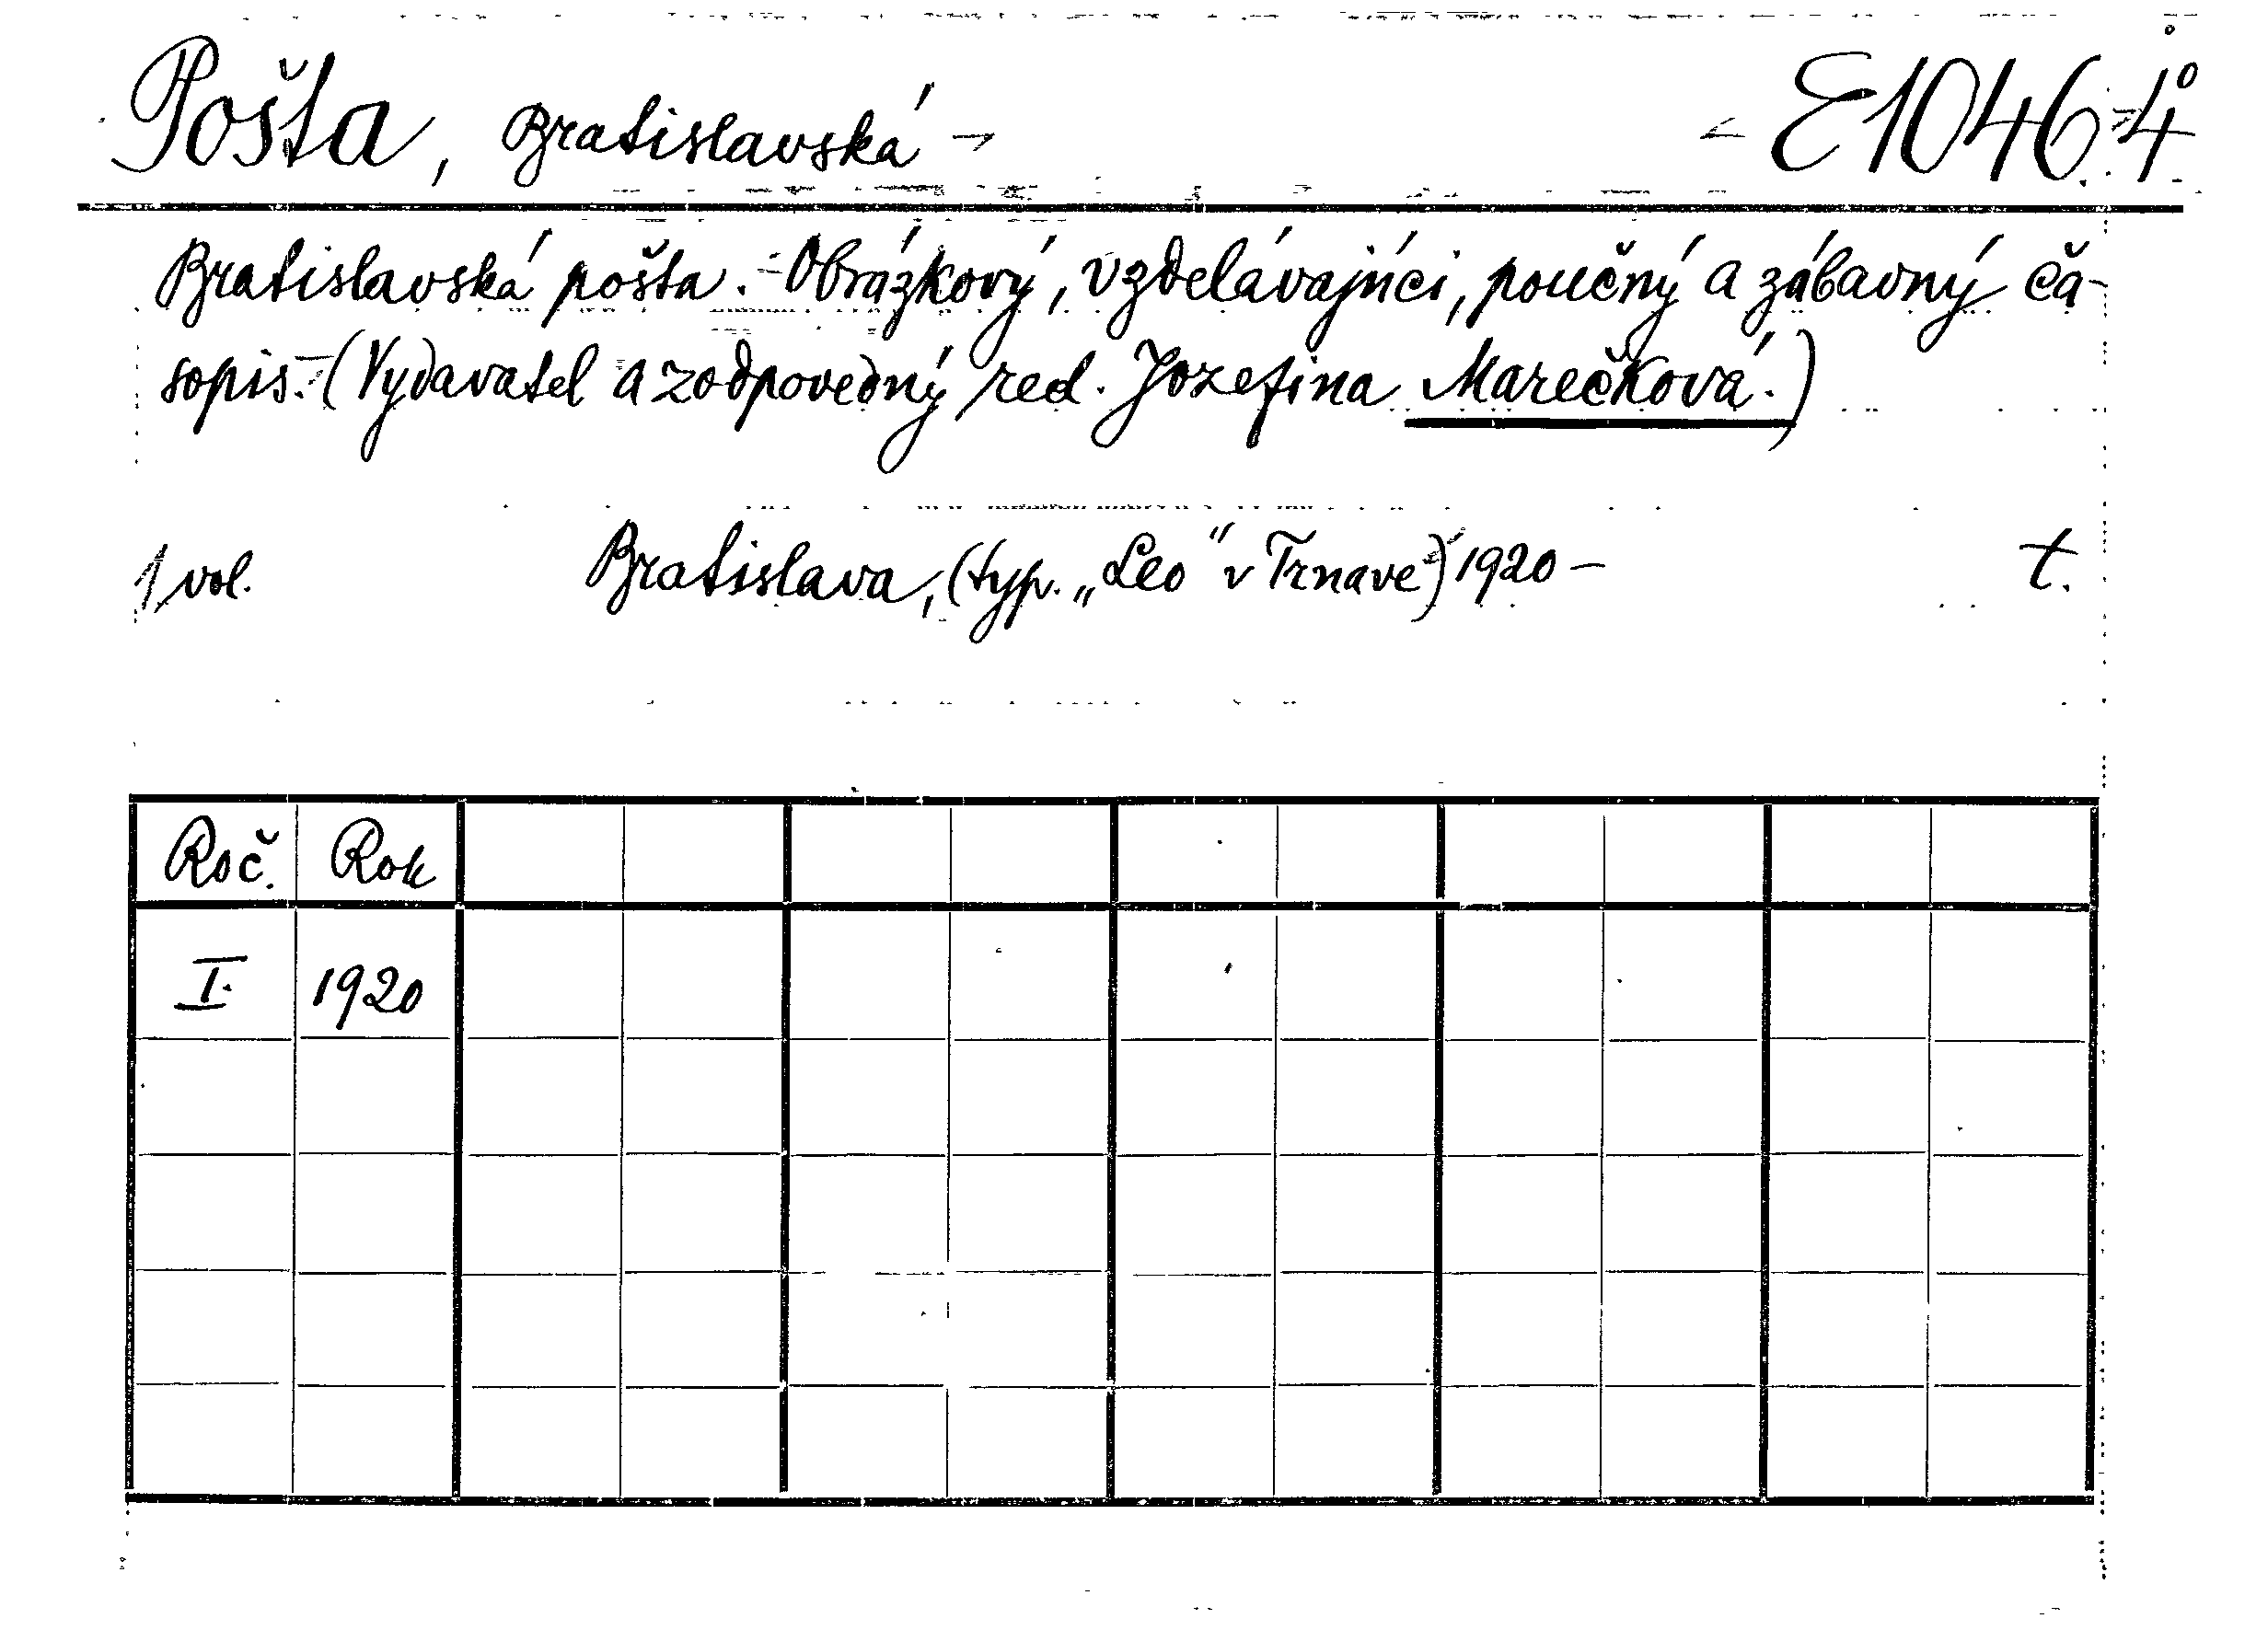 Pošta, Bratislavská – E1046 4°
Bratislavská pošta. - Obrázkový, vzdelávajúci, poučný a zábavný ča-
sopis. - (Vydavatel a zodpovedný red. Jozefina Marečková.)
1 vol. Bratislava, (typ. „Leo“ v Trnave) 1920 – t.
Roč. Rok
I. 1920